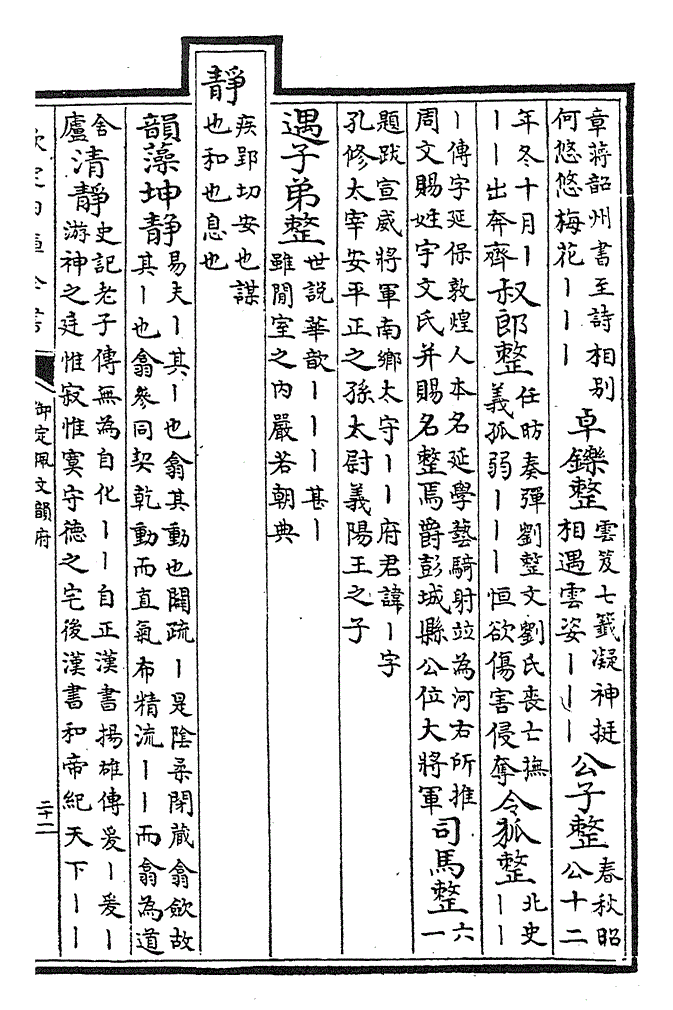 章蔣韶州書至詩相别
何悠悠梅花｜｜｜
卓鑠整
雲笈七籖凝神挺
相遇雲姿｜｜｜
公子整
春秋昭
公十二
年冬十月｜
｜｜出奔齊
叔郎整
任昉奏彈劉整文劉氏喪亡撫
義孤弱｜｜｜恒欲傷害侵奪
令狐整
北史
｜｜
｜傳字延保敦煌人本名延學藝騎射竝為河右所推
周文賜姓宇文氏并賜名整焉爵彭城縣公位大將軍
司馬整
六
一
題跋宣威將軍南鄉太守｜｜府君諱｜字
孔修太宰安平正之孫太尉義陽王之子
遇子弟整
世說華歆｜｜｜甚｜
雖閒室之內嚴若朝典
靜
疾郢切安也謀
也和也息也
韻藻坤靜
易夫｜其｜也翕其動也闢疏｜是陰柔閉藏翕歛故
其｜也翕參同契乾動而直氣布精流｜｜而翕為道
舍
廬
清靜
史記老子傳無為自化｜｜自正漢書揚雄傳爰｜爰｜
游神之廷惟寂惟寞守德之宅後漢書和帝紀天下｜｜
欽定四庫全書
御定佩文韻府
二十二